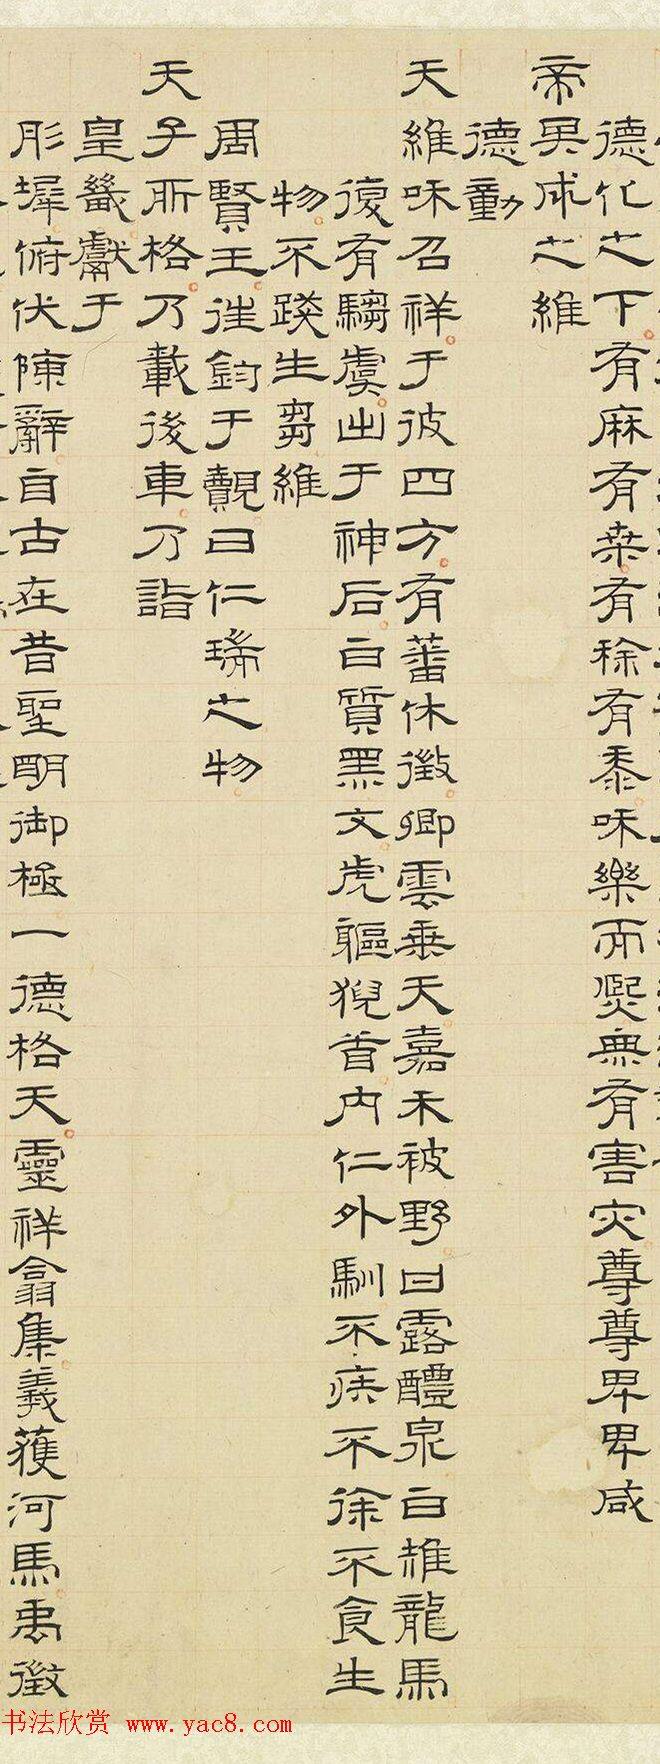 德化之下有麻有桒有稌有黍咊樂而熈無有害灾尊尊卑卑咸
帝男成之維
德動
天維咊召祥于彼四方有蕃休徵卿雲乗天嘉禾被野甘露醴泉白雄龍馬
復有騶虞出于神后白質黑文虎軀猊首内仁外馴不疾不徐不食生
物不踐生芻維
周賢王徃鈞于覿曰仁瑞之物
天子所格乃載後車乃詣
皇畿獻于
彤墀俯伏陳辭自古在昔聖明御極一德格天靈祥翕集羲獲河馬禹徵
书法欣赏 www.yac8.com